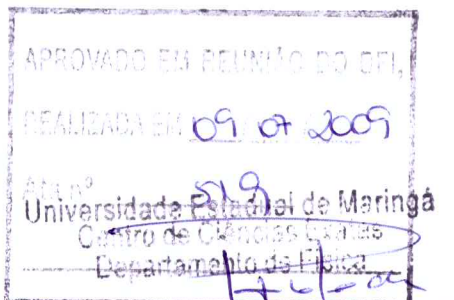 APROVADO EM REUNIÃO DO DFI,
REALIZADA EM 09 07 2009
Ata nº 519
Universidade Estadual de Maringá
Centro de Ciências Exatas
Departamento de Física